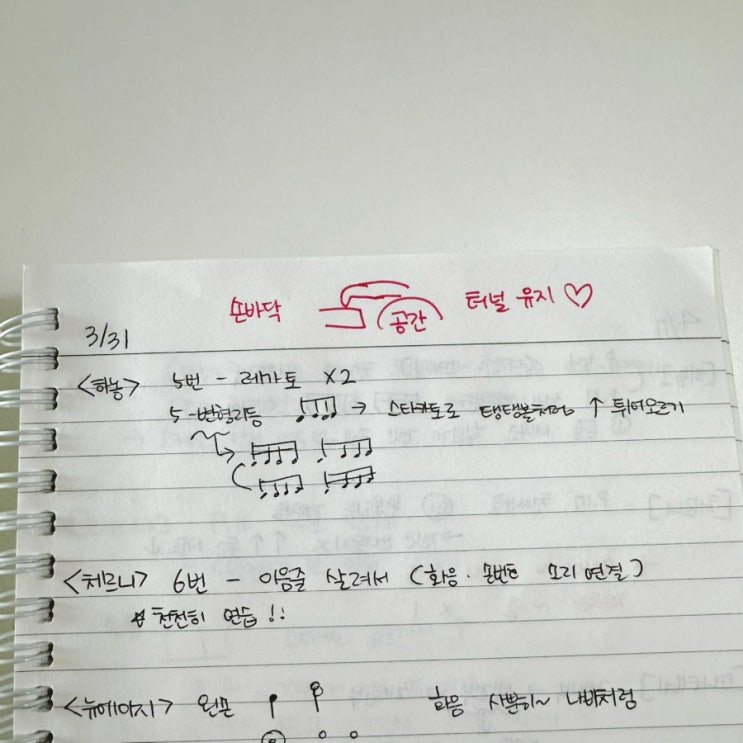 손바닥 공간 터널 유지 ♡
3/31
<하농> 5번 - 레가토 x2
5 - 변형리듬 → 스타카토로 탱탱볼처럼 ↑ 튀어오르기
<체르니> 6번 - 이음줄 살려서 (화음. 오른손 소리 연결)
천천히 연습!!
<뉴에이지> 왼손 화음 사뿐히~ 나비처럼